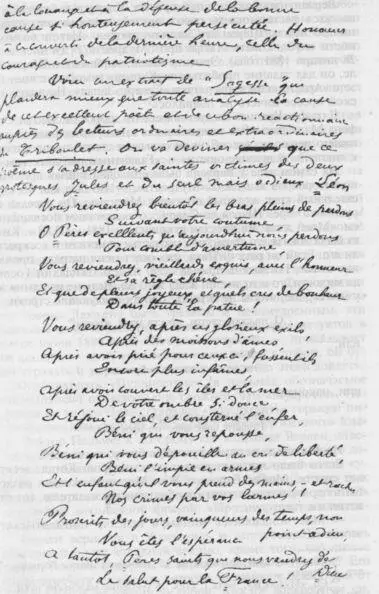 à la louange et à la défense de la bonne
cause si honteusement persécutée. Honneur
à ce converti de la dernière heure, celle du
courage et du patriotisme
Voici un extrait de "Sagesse" qui
plaidera mieux que toute analyse la cause
de cet excellent poète et de ce bon réactionnaire
auprès des lecteurs ordinaires et extraordinaires
du Triboulet. On va deviner que ce
poème s'adresse aux saintes victimes des deux
grotesques Jules et du seul mais odieux Léon
Vous reviendrez bientôt les bras pleins de pardons
Suivant votre coutume
O Pères excellents qu'aujourd'hui nous perdons
Pour comble d'amertume
Vous reviendrez, vieillards exquis, avec l'honneur
Et sa règle chérie
Et que de pleurs joyeux et quels cris de bonheur
Dans toute la patrie !
Vous reviendrez, après ces glorieux exils
Après des moissons d'âmes
Après avoir prié pour ceux-ci, fussent-ils
Encore plus infâmes
Après avoir couvert les îles et la mer
De votre ombre si douce
Et réjoui le ciel, et consterné l'enfer,
Béni qui vous repousse,
Béni qui vous dépouille au cri de liberté
Béni l'impie en armes
Et l'enfant qu'il vous prend des
Nos crimes par vos larmes !
Proscrits des jours, vainqueurs des temps, non
point adieu
Vous êtes l'espérance
A tantôt, Pères saints qui nous vaudrez de
Dieu
Le salut pour la France !